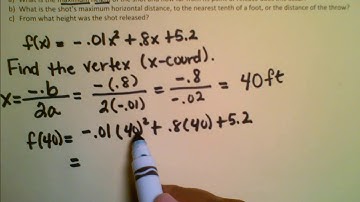 b) What is the shot's maximum horizontal distance, to the nearest tenth of a foot, or the distance of the throw?
c) From what height was the shot released?
f(x) = -.01x² + .8x + 5.2
Find the vertex (x-coord).
x = -b/2a = -(.8)/2(-.01) = -.8/-.02 = 40ft
f(40) = -.01(40)² + .8(40) + 5.2
=